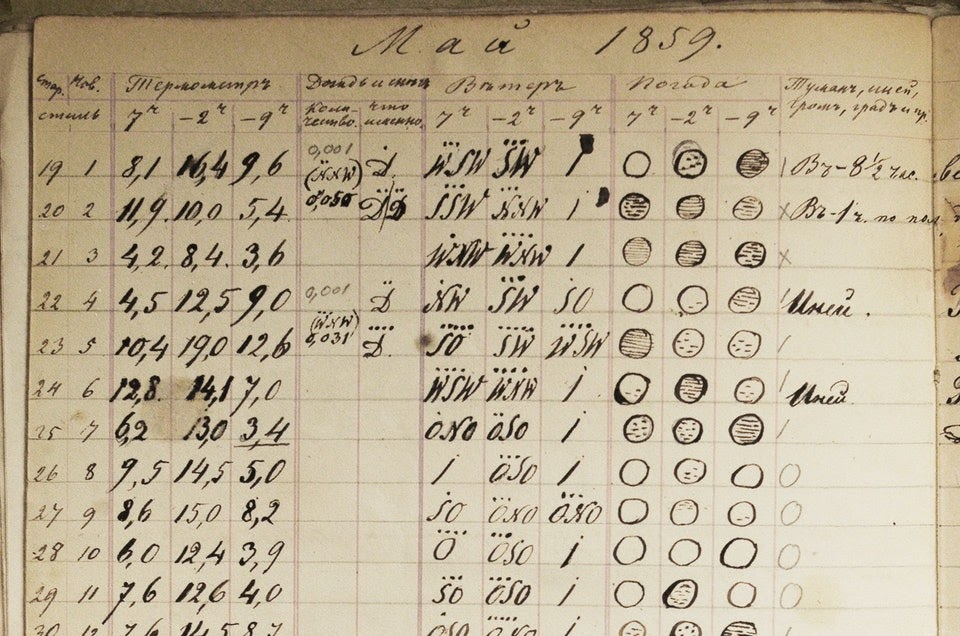 Май 1859.
Стар. Нов. Термометръ Дождь и снѣгъ Вѣтеръ Погода Туманъ, иней,
стиль 7ч -2ч -9ч Коли- что 7ч -2ч -9ч 7ч -2ч -9ч громъ, градъ и пр.
чество. именно.
0,001
19 1 8,1 16,4 9,6 (NNW) Д. WSW SW 1 Въ-8½ час.
20 2 11,9. 10,0 5,4 0,050 SSW NNW 1 Въ-1ч. по пол.
21 3 4,2. 8,4. 3,6 WNW WNW 1 x
22 4 4,5 12,5 9,0 0,001 Д NW SW SO Иней.
(WNW)
23 5 10,4 19,0 12,6 0,031 Д. SO SW WSW
24 6 12,8. 14,1 7,0 WSW WNW 1 Иней.
25 7 6,2 13,0 3,4 ONO OSO 1
26 8 9,5 14,5 5,0 1 OSO 1
27 9 8,6 15,0 8,2 SO ONO ONO
28 10 6,0 12,4 3,9 O OSO 1
29 11 7,6 12,6 4,0 SO OSO 1
30 12 7,6 14,5 8,7 OSO 1